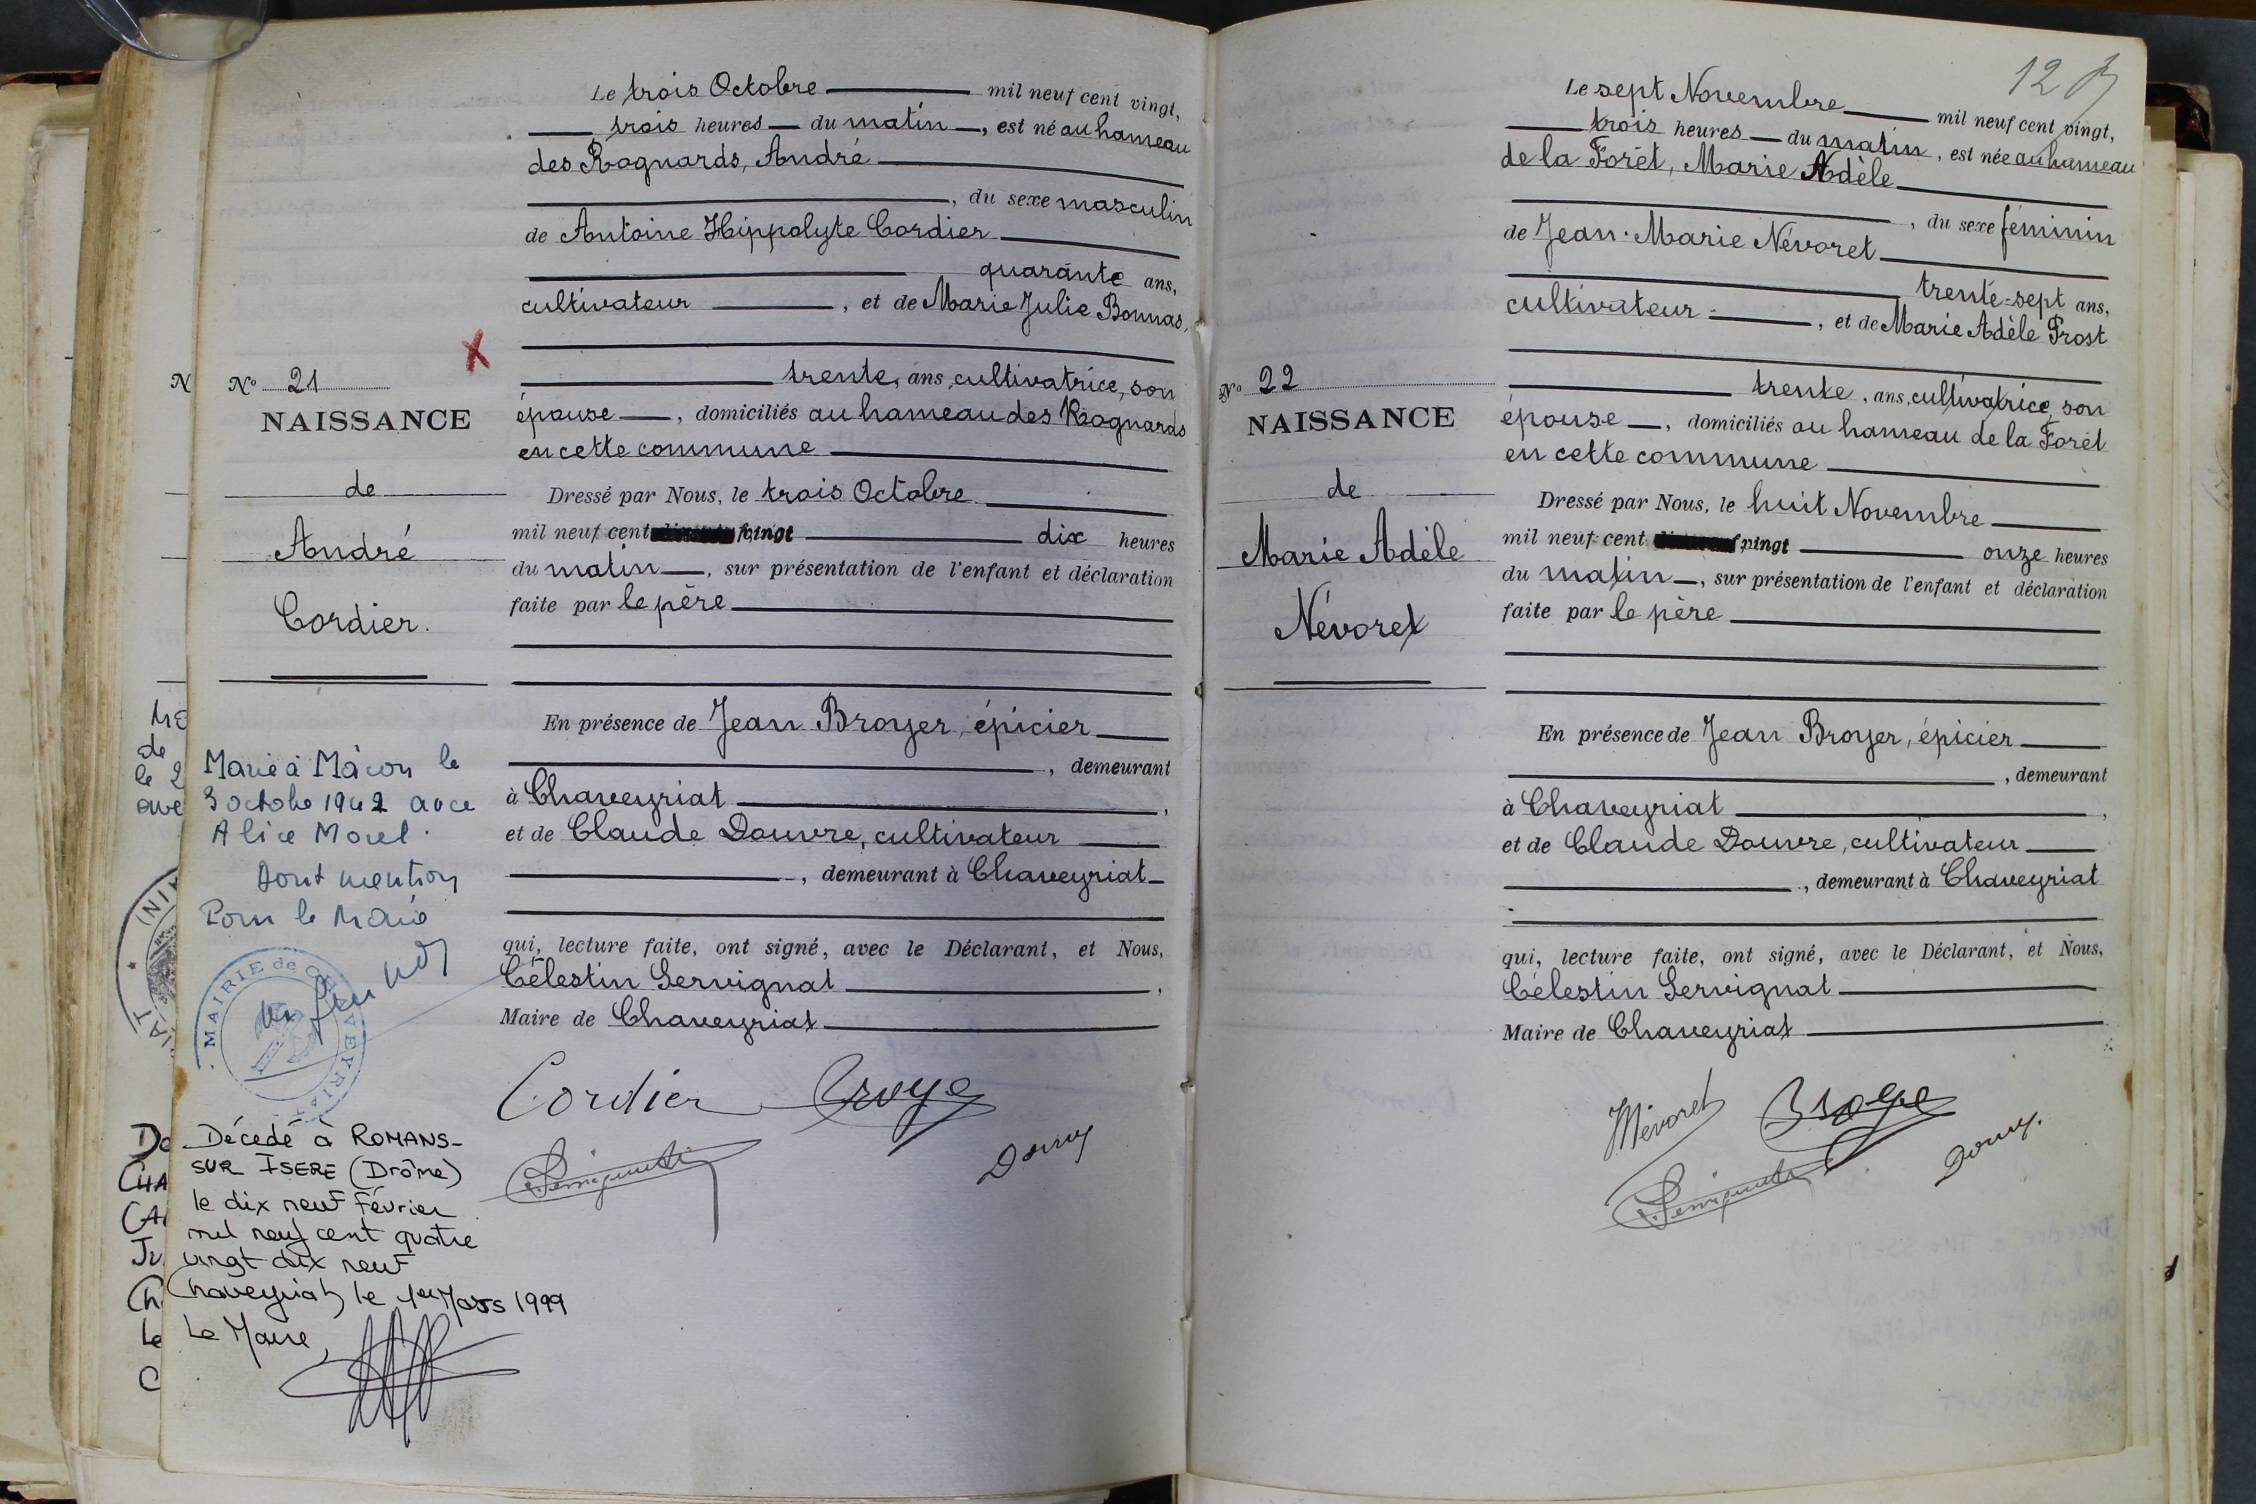 Le trois Octobre mil neuf cent vingt,
trois heures du matin, est né au hameau
des Rognards, André
, du sexe masculin
de Antoine Hippolyte Cordier
quarante ans,
cultivateur, et de Marie Julie Bonnas,
X
trente, ans, cultivatrice, son
épouse, domiciliés au hameau des Rognards
en cette commune
Nº 21
NAISSANCE
de
André
Cordier.
Dressé par Nous, le trois Octobre
mil neuf cent vingt dix heures
du matin, sur présentation de l'enfant et déclaration
faite par le père
En présence de Jean Broyer, épicier
, demeurant
à Chaveyriat,
et de Claude Douvre, cultivateur
, demeurant à Chaveyriat
qui, lecture faite, ont signé, avec le Déclarant, et Nous,
Célestin Servignat,
Maire de Chaveyriat
Cordier Broye
Marié à Mâcon le
3 octobre 1942 avec
Alice Morel.
Dont mention
Pour le Maire
MAIRIE de CHAVEYRIAT
Décédé à ROMANS-
SUR ISERE (Drôme)
le dix neuf Février
mil neuf cent quatre
vingt dix neuf
Chaveyriat, le 1er Mars 1999
Le Maire,
12
Le sept Novembre mil neuf cent vingt,
trois heures du matin, est née au hameau
de la Forêt, Marie Adèle
, du sexe féminin
de Jean-Marie Névoret
trente-sept ans,
cultivateur, et de Marie Adèle Prost
trente, ans, cultivatrice, son
épouse, domiciliés au hameau de la Forêt
en cette commune
Nº 22
NAISSANCE
de
Marie Adèle
Névoret
Dressé par Nous, le huit Novembre
mil neuf cent vingt onze heures
du matin, sur présentation de l'enfant et déclaration
faite par le père
En présence de Jean Broyer, épicier
, demeurant
à Chaveyriat,
et de Claude Douvre, cultivateur
, demeurant à Chaveyriat
qui, lecture faite, ont signé, avec le Déclarant, et Nous,
Célestin Servignat
Maire de Chaveyriat
Névoret Broye